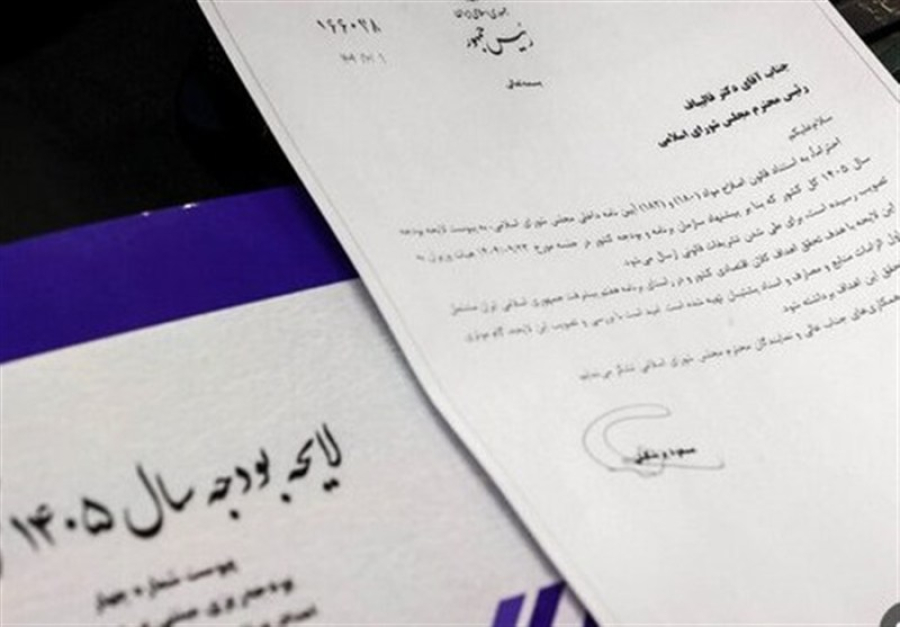 ۱۶۶۰۲۸
جمهوری اسلامی ایران
رئیس جمهور
بسمه‌تعالی
جناب آقای دکتر قالیباف
رئیس محترم مجلس شورای اسلامی
سلام‌علیکم
احتراماً، به استناد قانون اصلاح مواد (۱۸۰) و (۱۸۲) آیین نامه داخلی مجلس شورای اسلامی، به پیوست لایحه بودجه
سال ۱۴۰۵ کل کشور که بنا بر پیشنهاد سازمان برنامه و بودجه کشور در جلسه مورخ هیات وزیران به
تصویب رسیده است، برای طی شدن تشریفات قانونی ارسال می‌شود.
این لایحه با هدف تحقق اهداف کلان اقتصادی کشور و در راستای برنامه هفتم پیشرفت جمهوری اسلامی ایران مشتمل
الزامات منابع و مصارف و اسناد پشتیبان تهیه شده است. امید است با بررسی و تصویب این لایحه، گام موثری
تحقق این اهداف برداشته شود.
همکاری‌های جناب عالی و نمایندگان محترم مجلس شورای اسلامی تشکر می‌نماید.
مسعود پزشکیان
لایحه بودجه سال ۱۴۰۵
پیوست شماره چهار